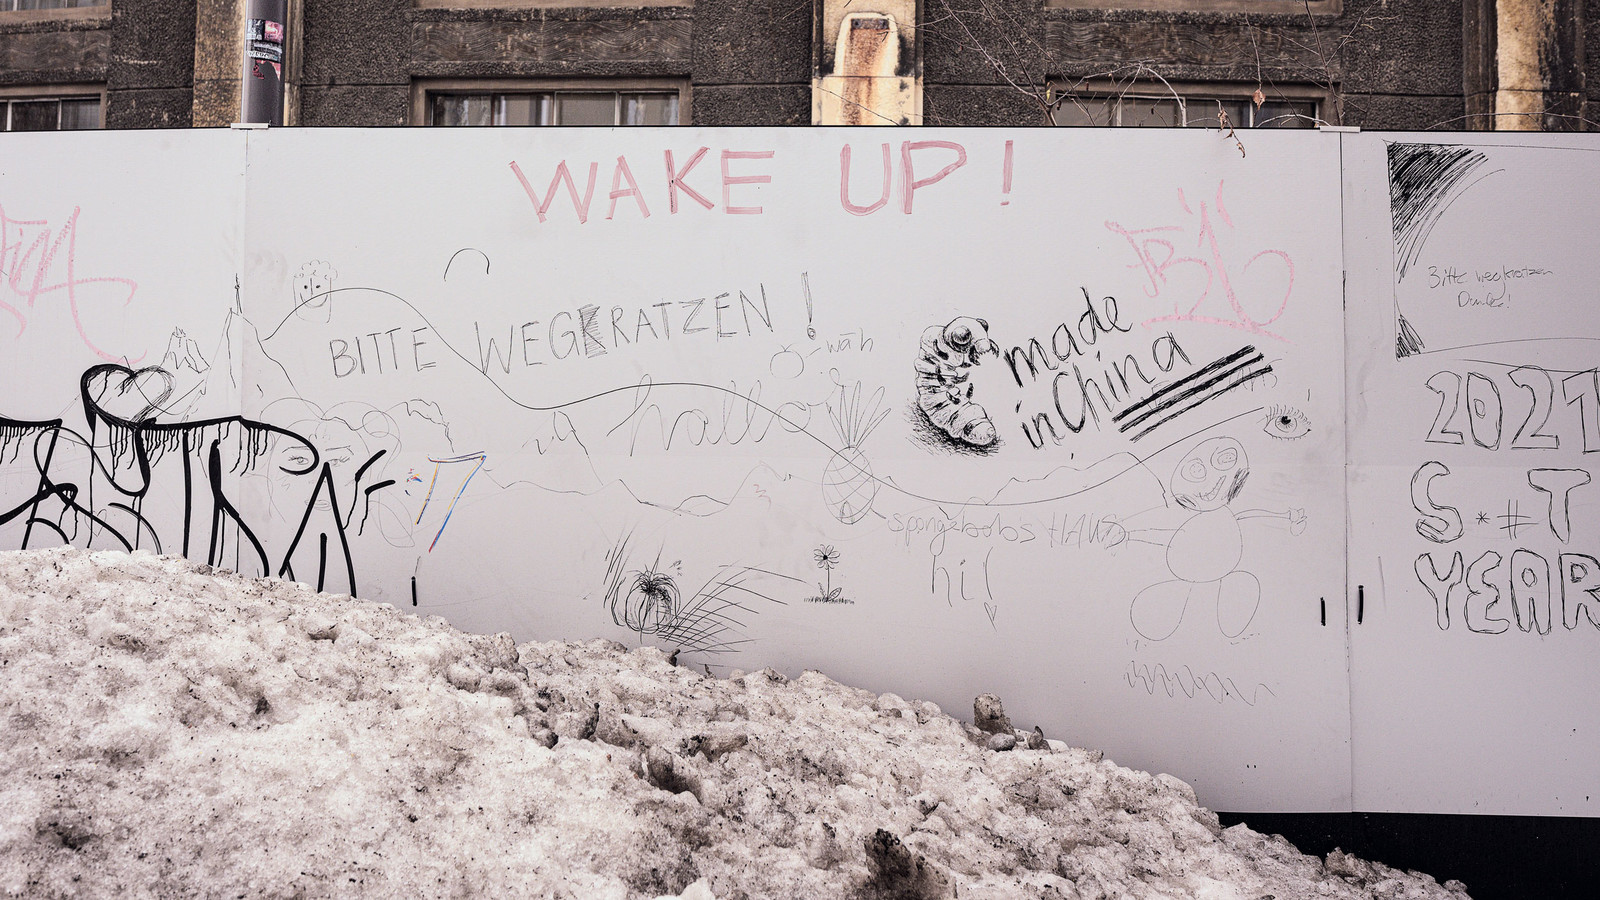 WAKE UP!
BITTE WEGKRATZEN!
wäh
hallo
made
in China
spongebob's HAUS
hi!
Bitte wegkratzen
Danke!
2021
S*#T
YEAR